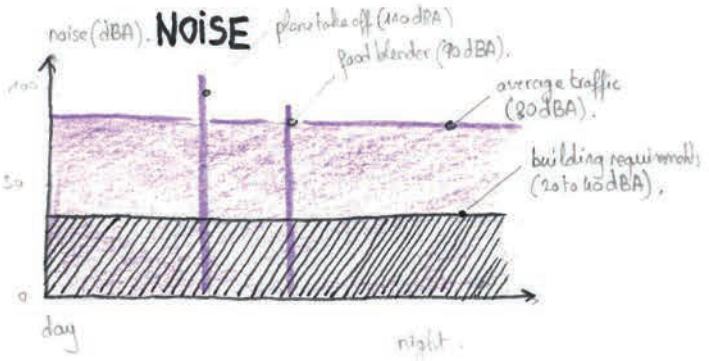 noise (dBA). NOISE
plane take off (100 dBA)
food blender (90 dBA).
average traffic
(80 dBA).
building requirements
(20 to 40 dBA).
100
50
0
day
night.